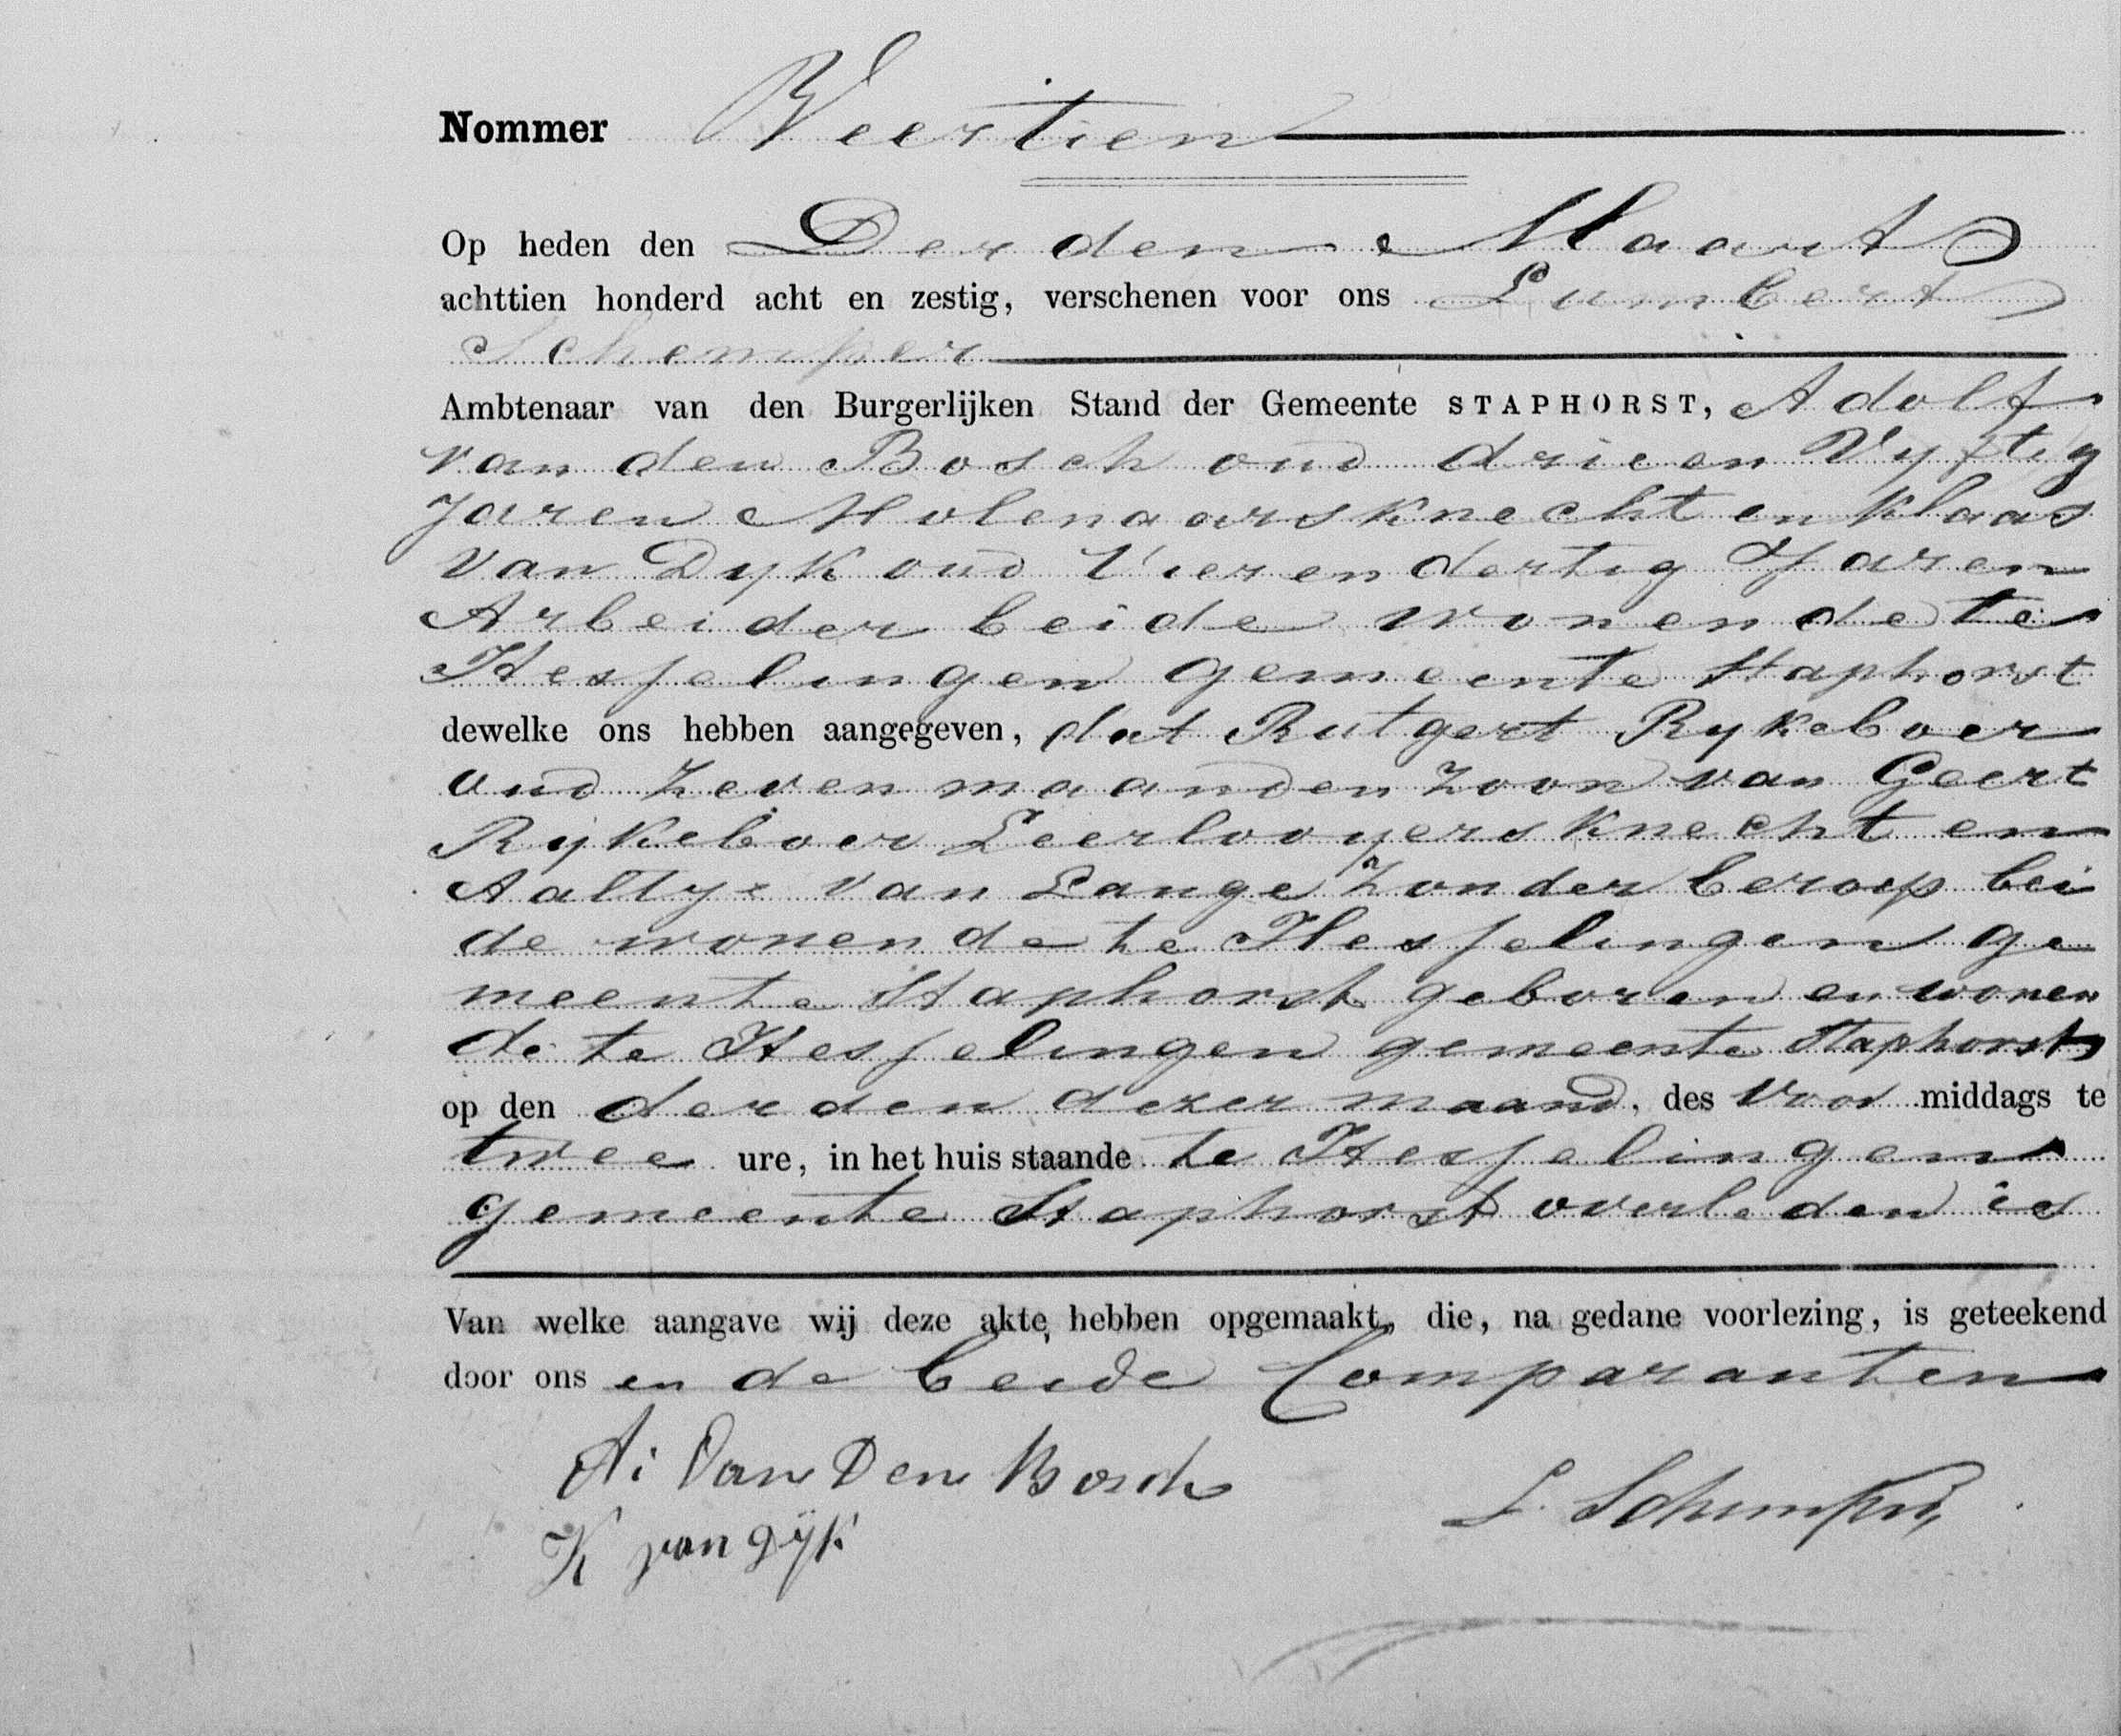 Nommer Veertien
Op heden den Derden Maart
achttien honderd acht en zestig, verschenen voor ons Lumbert
Schemper
Ambtenaar van den Burgerlijken Stand der Gemeente STAPHORST, Adolf
van den Bosch oud drie en Vyftig
Jaren Molenaarsknecht en Klaas
van Dyk oud Vier en dertig Jaren
Arbeider beide wonende te
Hesselingen gemeente Staphorst
dewelke ons hebben aangegeven, dat Rutgert Rykeboer
oud Zeven maanden Zoon van Geert
Rijkeboer Leerlooyersknecht en
Aaltje van Lange Zonder beroep bei
de wonende te Hesselingen ge
meente Staphorst geboren en wonen
de te Hesselingen gemeente Staphorst
op den derden dezer maand, des voor middags te
twee ure, in het huis staande te Hesselingen
gemeente Staphorst overleden is
Van welke aangave wij deze akte hebben opgemaakt, die, na gedane voorlezing, is geteekend
door ons en de beide Comparanten
A: Van Den Bosch
L. Schemper
K van Dÿk